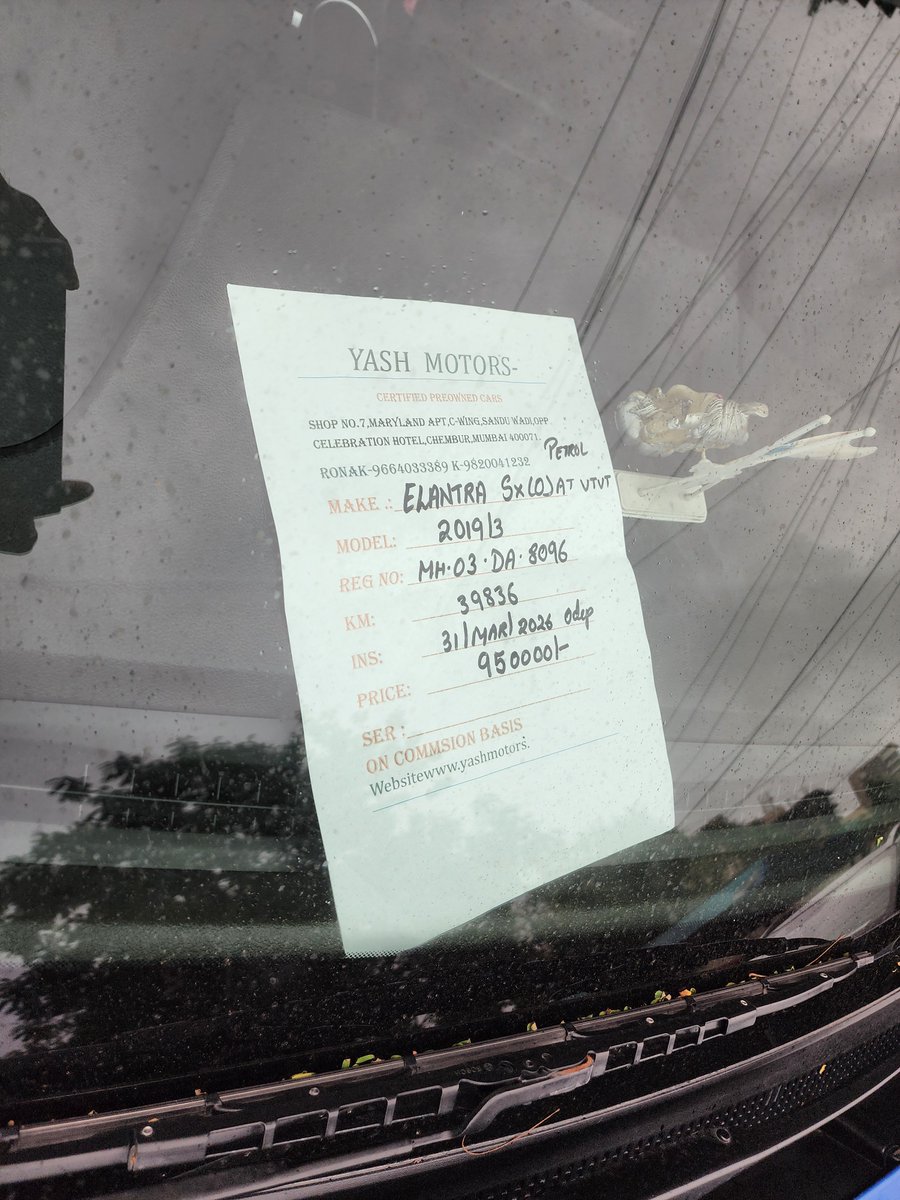 YASH MOTORS-
CERTIFIED PREOWNED CARS
SHOP NO.7,MARYLAND APT,C-WING,SANDU WADI,OPP
CELEBRATION HOTEL,CHEMBUR,MUMBAI 400071.
RONAK-9664033389 K-9820041232 PETROL
MAKE .: ELANTRA Sx(O)AT VTVT
MODEL: 2019/3
REG NO: MH.03.DA.8096
KM: 39836
INS: 31/MAR/2026 Odep
PRICE: 950000/-
SER :
ON COMMSION BASIS
Websitewww.yashmotors.